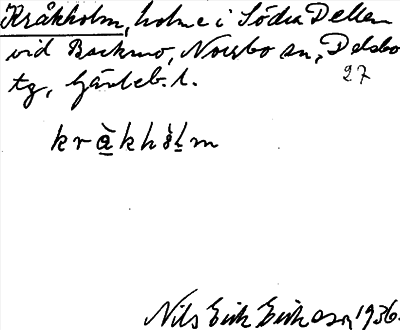 Kråkholm, holme i Södra Dellen
vid Backmo, Norrbo sn, Delsbo
tg, Gävleb. l.
27
kråkhòlm
Nils Erik Eriksson 1936.